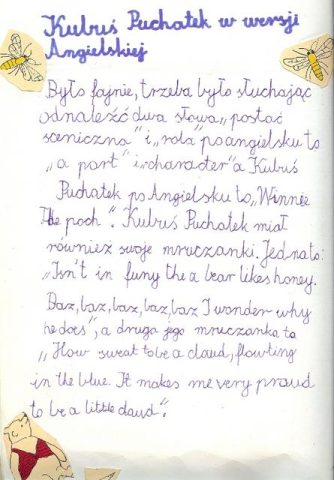 Kubuś Puchatek w wersji
Angielskiej
Było fajnie, trzeba było słuchając
odnaleźć dwa słowa „postać
sceniczna" i „rola" po angielsku to
„a part" i „character" a Kubuś
Puchatek po Angielsku to „Winnee
the pooh". Kubuś Puchatek miał
również swoje mruczanki. Jedna to:
„Isn't in funy the a bear likes honey.
Baz, baz, baz, baz, baz I wonder why
he does", a druga jego mruczanka to
„How sweat to be a claud, flowting
in the blue. It makes me very proud
to be a little daud".